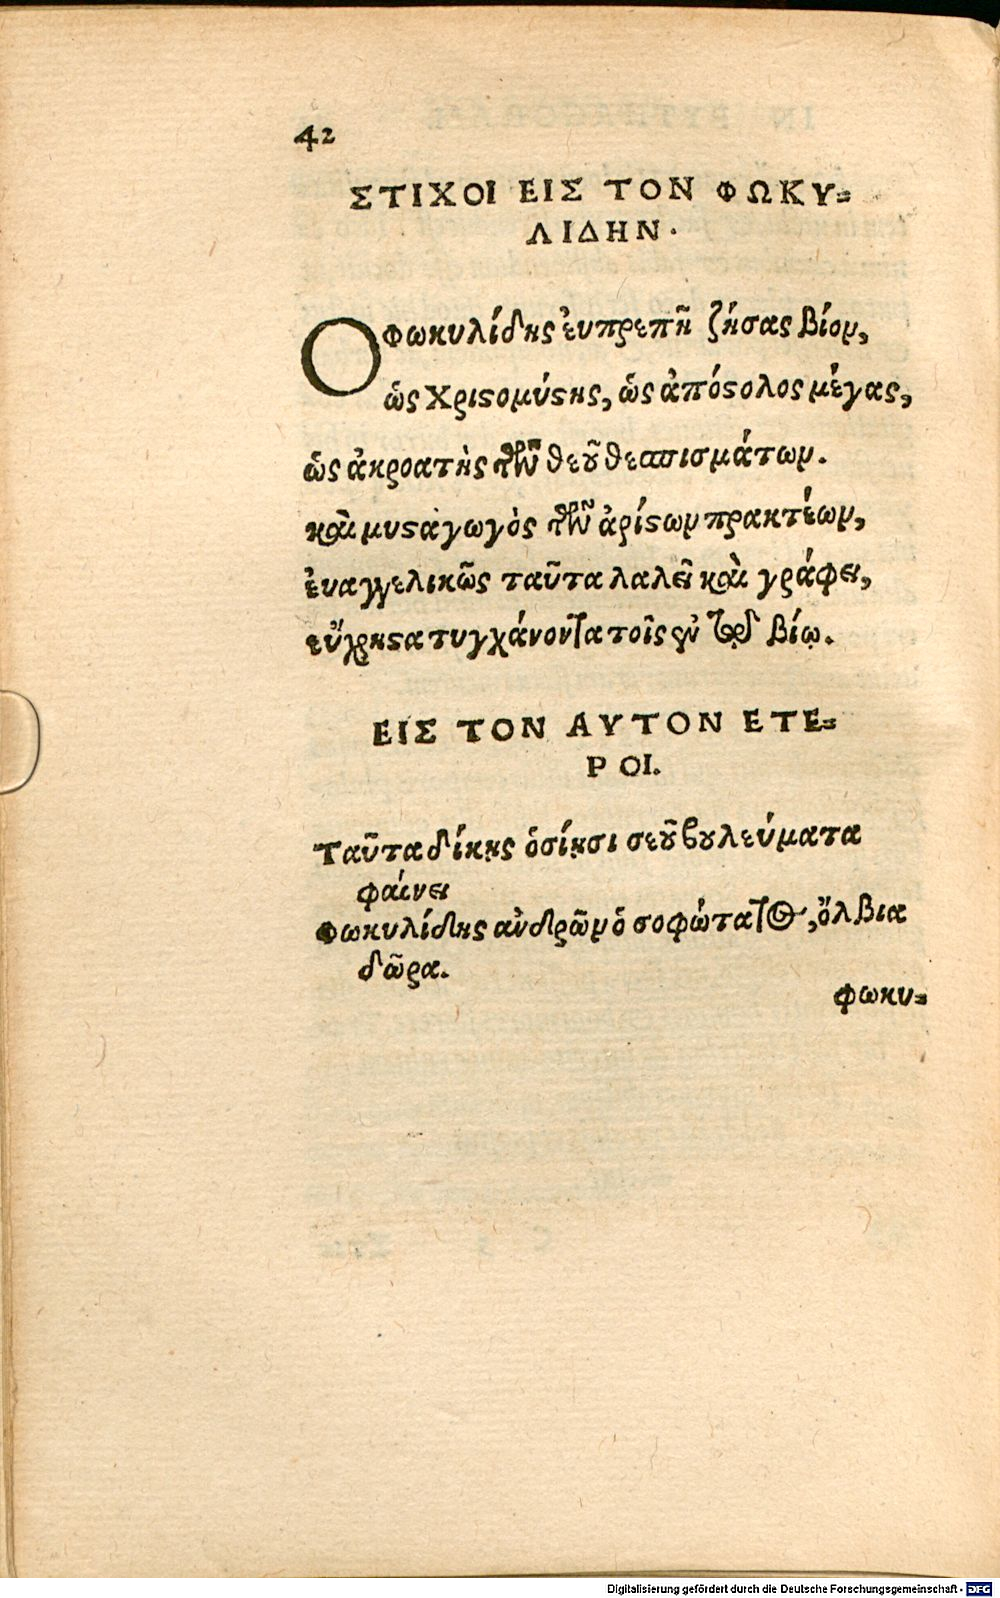 42
ΣΤΙΧΟΙ ΕΙΣ ΤΟΝ ΦΩΚΥ=
ΛΙΔΗΝ.
Ο φωκυλίδης ἐυπρεπῆ ζήσας βίον,
ὡς Χριϛομύϛης, ὡς ἀπόϛολος μέγας,
ὡς ἀκροατὴς τῶν θεοῦ θεασπισμάτων.
καὶ μυϛαγωγὸς τῶν ἀρίϛων πρακτέων,
ἐυαγγελικῶς ταῦτα λαλεῖ καὶ γράφει,
εὔχρηϛα τυγχάνοντα τοῖς ἐν τῷδε βίῳ.
ΕΙΣ ΤΟΝ ΑΥΤΟΝ ΕΤΕ=
ΡΟΙ.
Ταῦτα δίκῃς ὁσίῃσι σεοῦ βουλεύματα
φαίνει
Φωκυλίδης ἀνδρῶν ὁ σοφώτατος, ὄλβια
δῶρα.
φωκυ=
Digitalisierung gefördert durch die Deutsche Forschungsgemeinschaft - DFG